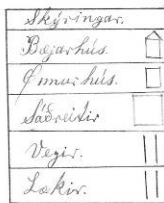 Skýringar.
Bæjarhús.
Önnur hús.
Sáðreitir
Vegir.
Lækir.